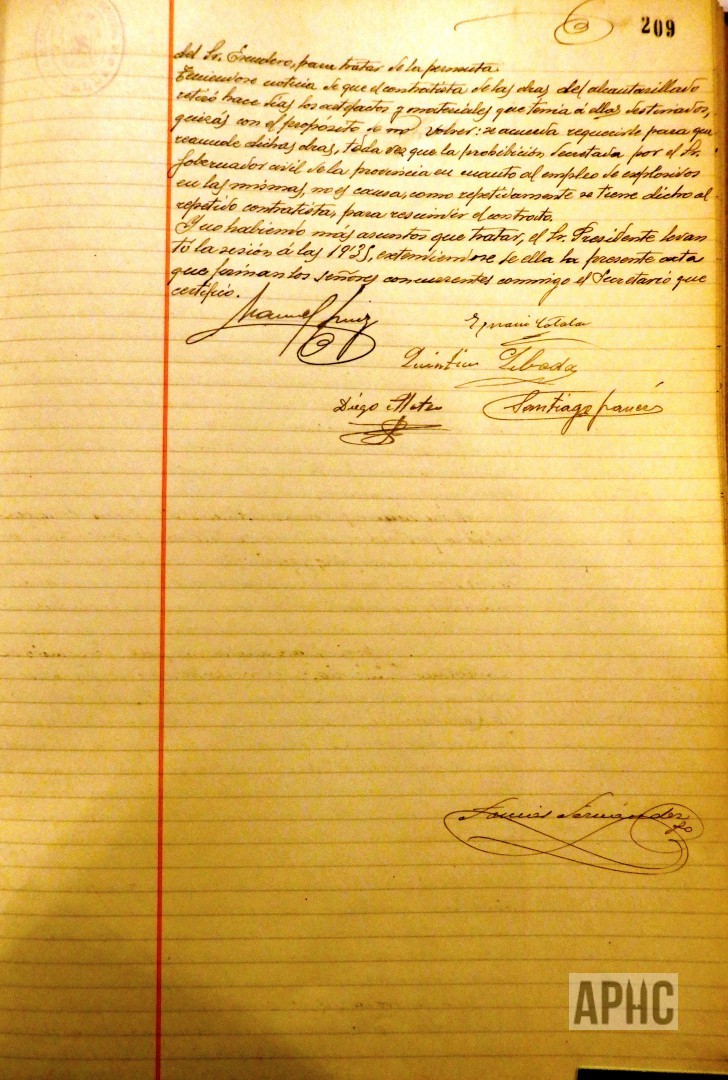 209
del Sr. Escudero, para tratar de la permuta.
Teniendose noticia de que el contratista de las obras del alcantarillado
retiró hace días los artefactos y materiales que tenia á ellas destinados,
quizás con el propósito de no volver: se acuerda requerirle para que
reanude dichas obras, toda vez que la prohibición decretada por el Sr.
Gobernador civil de la provincia en cuanto al empleo de explosivos
en las mismas, no es causa, como repetidamente se tiene dicho al
repetido contratista, para rescindir el contrato.
Y no habiendo más asuntos que tratar, el Sr. Presidente levan
tó la sesión á las 19'35, extendiendose de ella la presente acta
que firman los señores concurrentes conmigo el Secretario que
certifico.
Manuel Ruiz
Catalan
Quintin
Diego Mateo
Santiago
Fernández
APHC